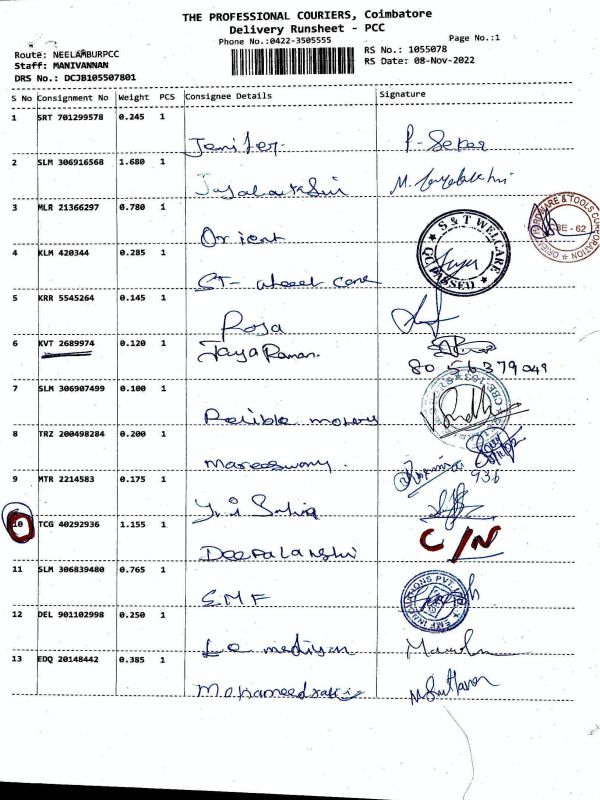 THE PROFESSIONAL COURIERS, Coimbatore
Delivery Runsheet - PCC
Phone No.:0422-3505555
Page No.:1
Route: NEELAMBURPCC
RS No.: 1055078
Staff: MANIVANNAN
RS Date: 08-Nov-2022
DRS No.: DCJB105507801
S No Consignment No Weight PCS Consignee Details Signature
1 SRT 701299578 0.245 1
Jenifer. P-Seker
2 SLM 306916568 1.680 1
3 MLR 21366297 0.780 1
Orient
ORIENT HARDWARE & TOOLS CORPORATION
CBE - 62
4 KLM 420344 0.285 1
ST- wheel care
S & T WELCARE
QC PASSED
5 KRR 5545264 0.145 1
Roja
6 KVT 2689974 0.120 1
Jaya Raman.
80 56379049
7 SLM 306907499 0.100 1
8 TRZ 200498284 0.200 1
936
9 MTR 2214583 0.175 1
10 TCG 40292936 1.155 1
Deepalakshi C/N
11 SLM 306839480 0.765 1
EMF
EMF INNOVATIONS PVT LTD
12 DEL 901102998 0.250 1
13 EDQ 20148442 0.385 1